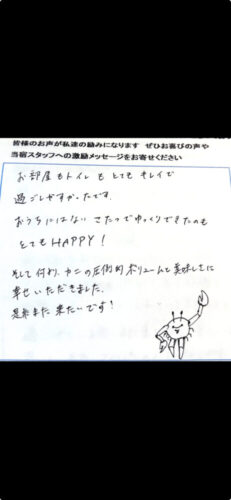 皆様のお声が私達の励みになります ぜひお喜びの声や
当宿スタッフへの激励メッセージをお寄せください
お部屋もトイレもとてもキレイで
過ごしやすかったです。
おうちにはない こたつでゆっくりできたのも
とてもHAPPY!
そして何より、カニの圧倒的ボリュームと美味しさに
幸せいただきました。
是非また来たいです!